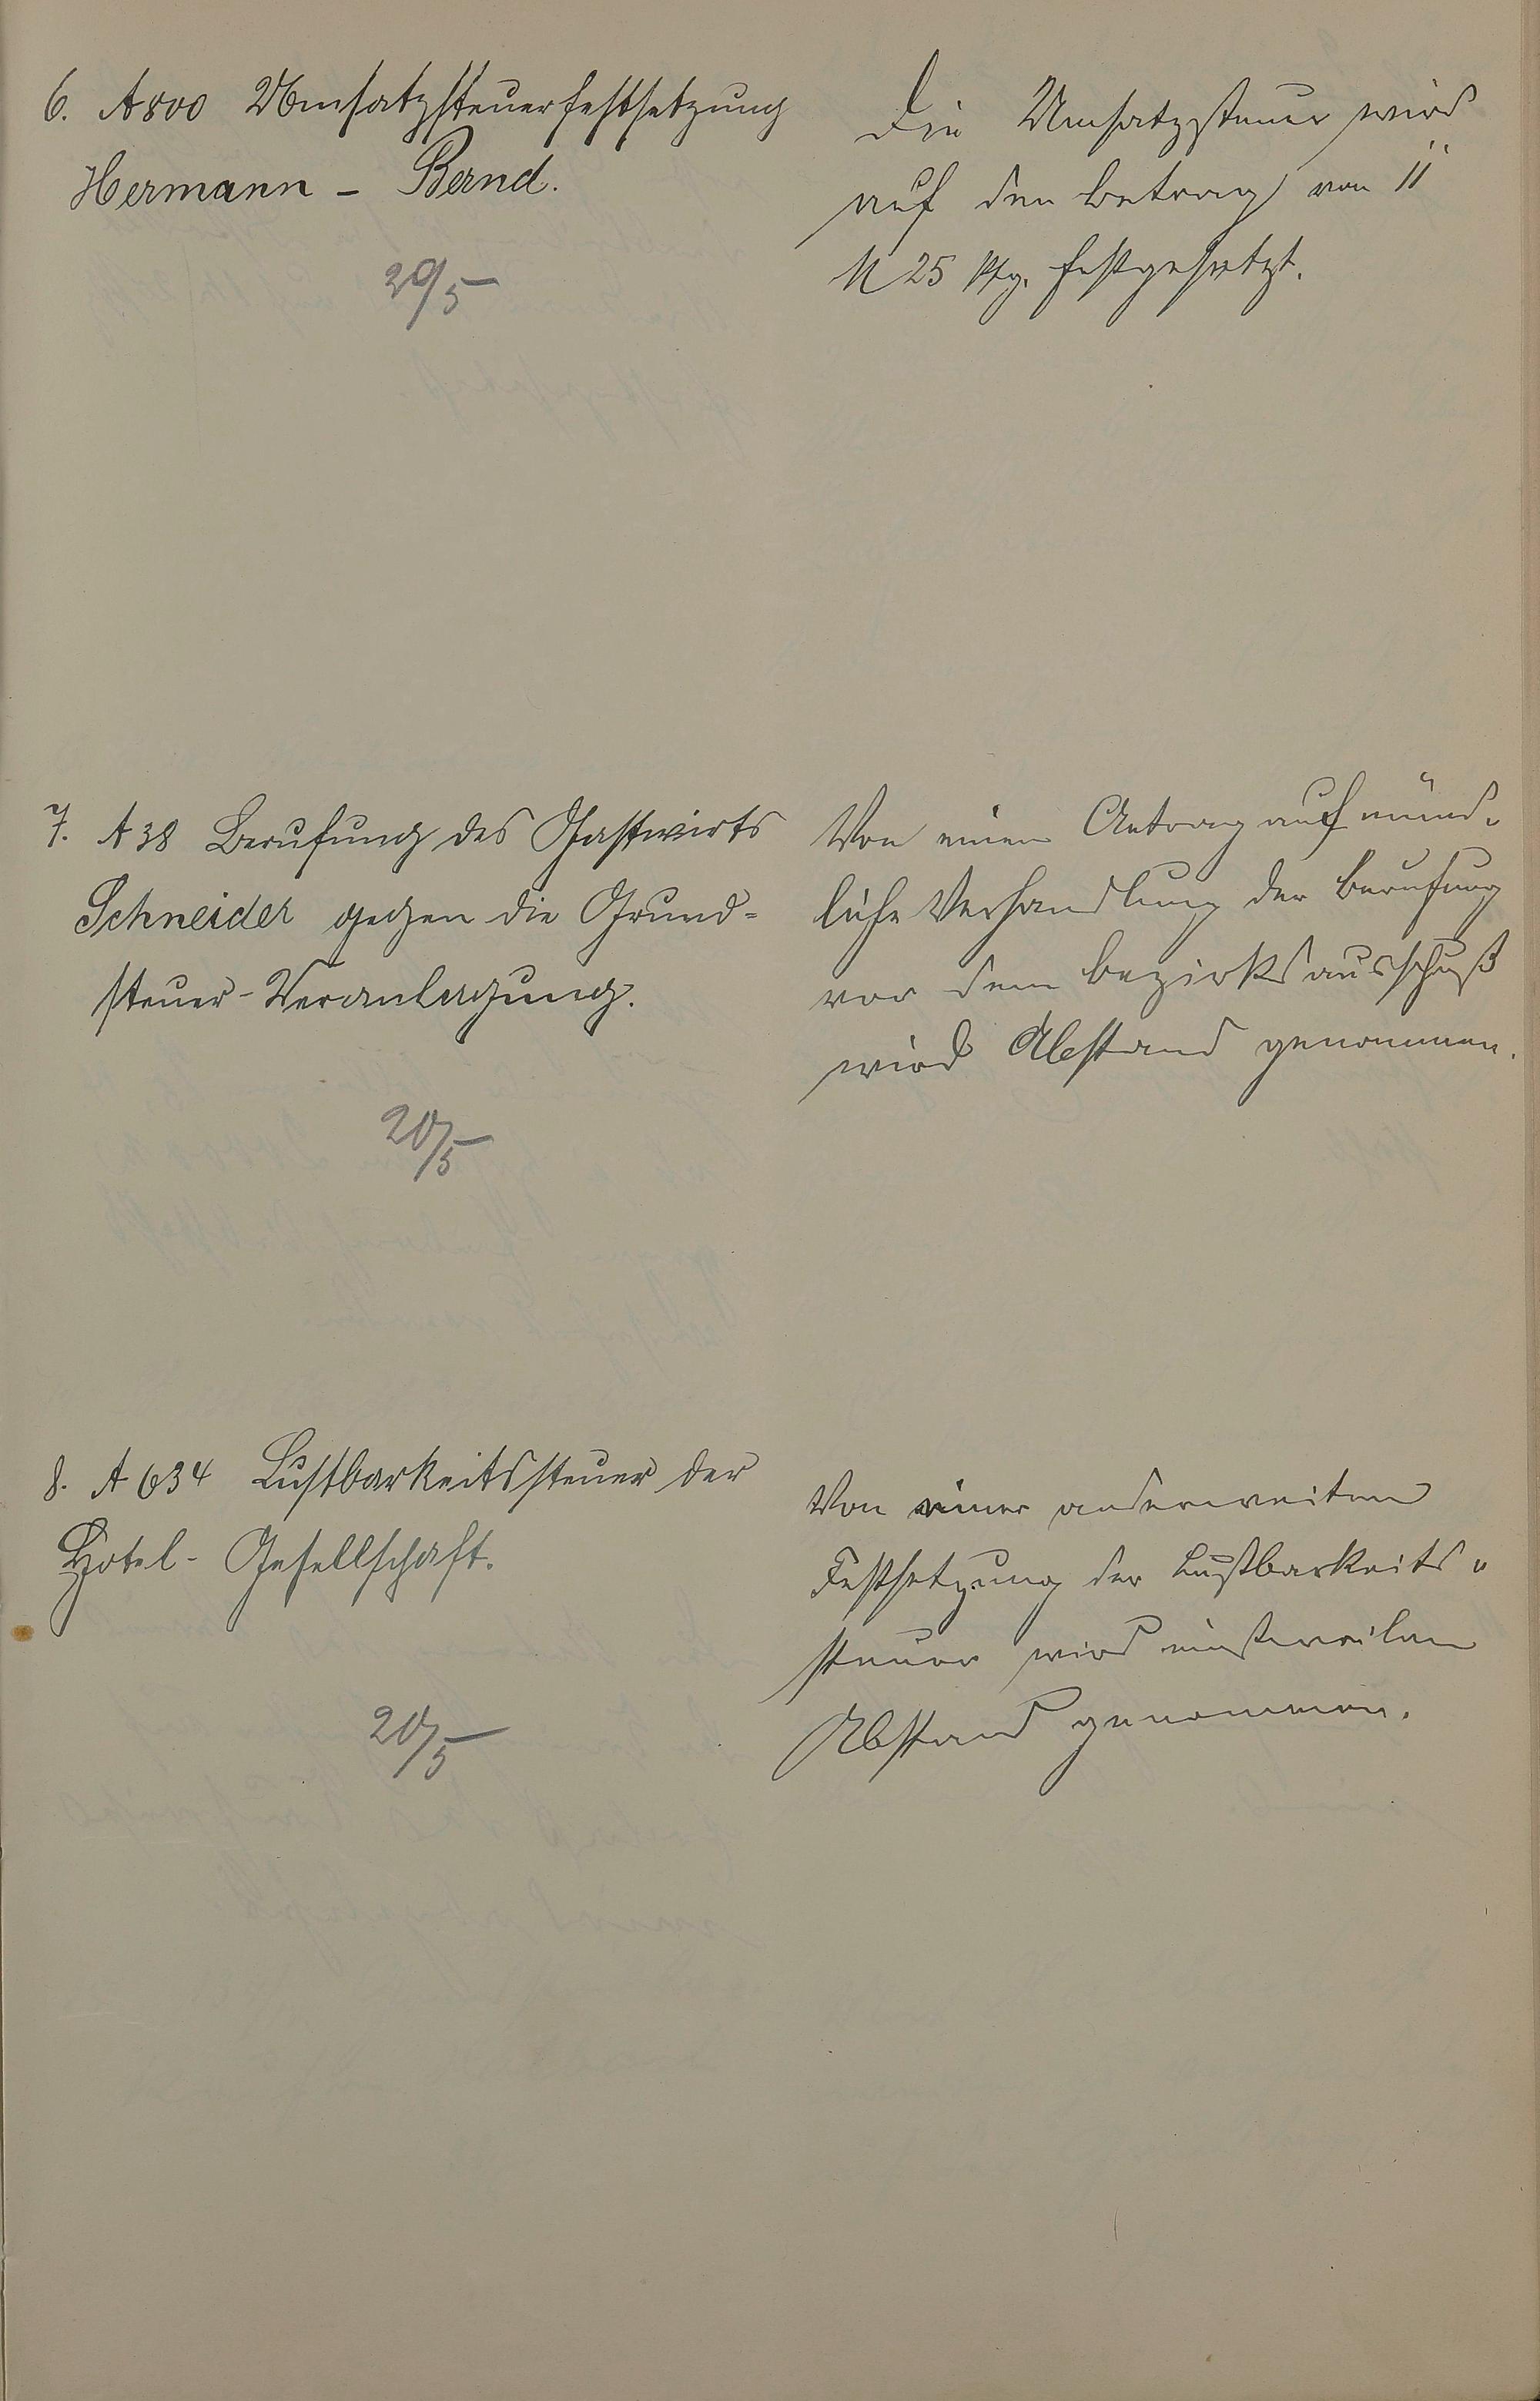 6. A 800 Umsatzsteuerfestsetzung
Hermann - Bernd.
20/5
Die Umsatzsteuer wird
auf den Betrag von 11
M 25 Pfg. festgesetzt.
7. A 38 Berufung des Gastwirts
Schneider gegen die Grund=
steuer-Veranlagung.
20/5
Von einem Antrag auf münd-
liche Verhandlung der Berufung
vor dem Bezirksausschuß
wird Abstand genommen.
8. A 634 Lustbarkeitssteuer der
Hotel- Gesellschaft.
20/5
Von einer anderweiten
Festsetzung der Lustbarkeits-
steuer wird einstweilen
Abstand genommen.